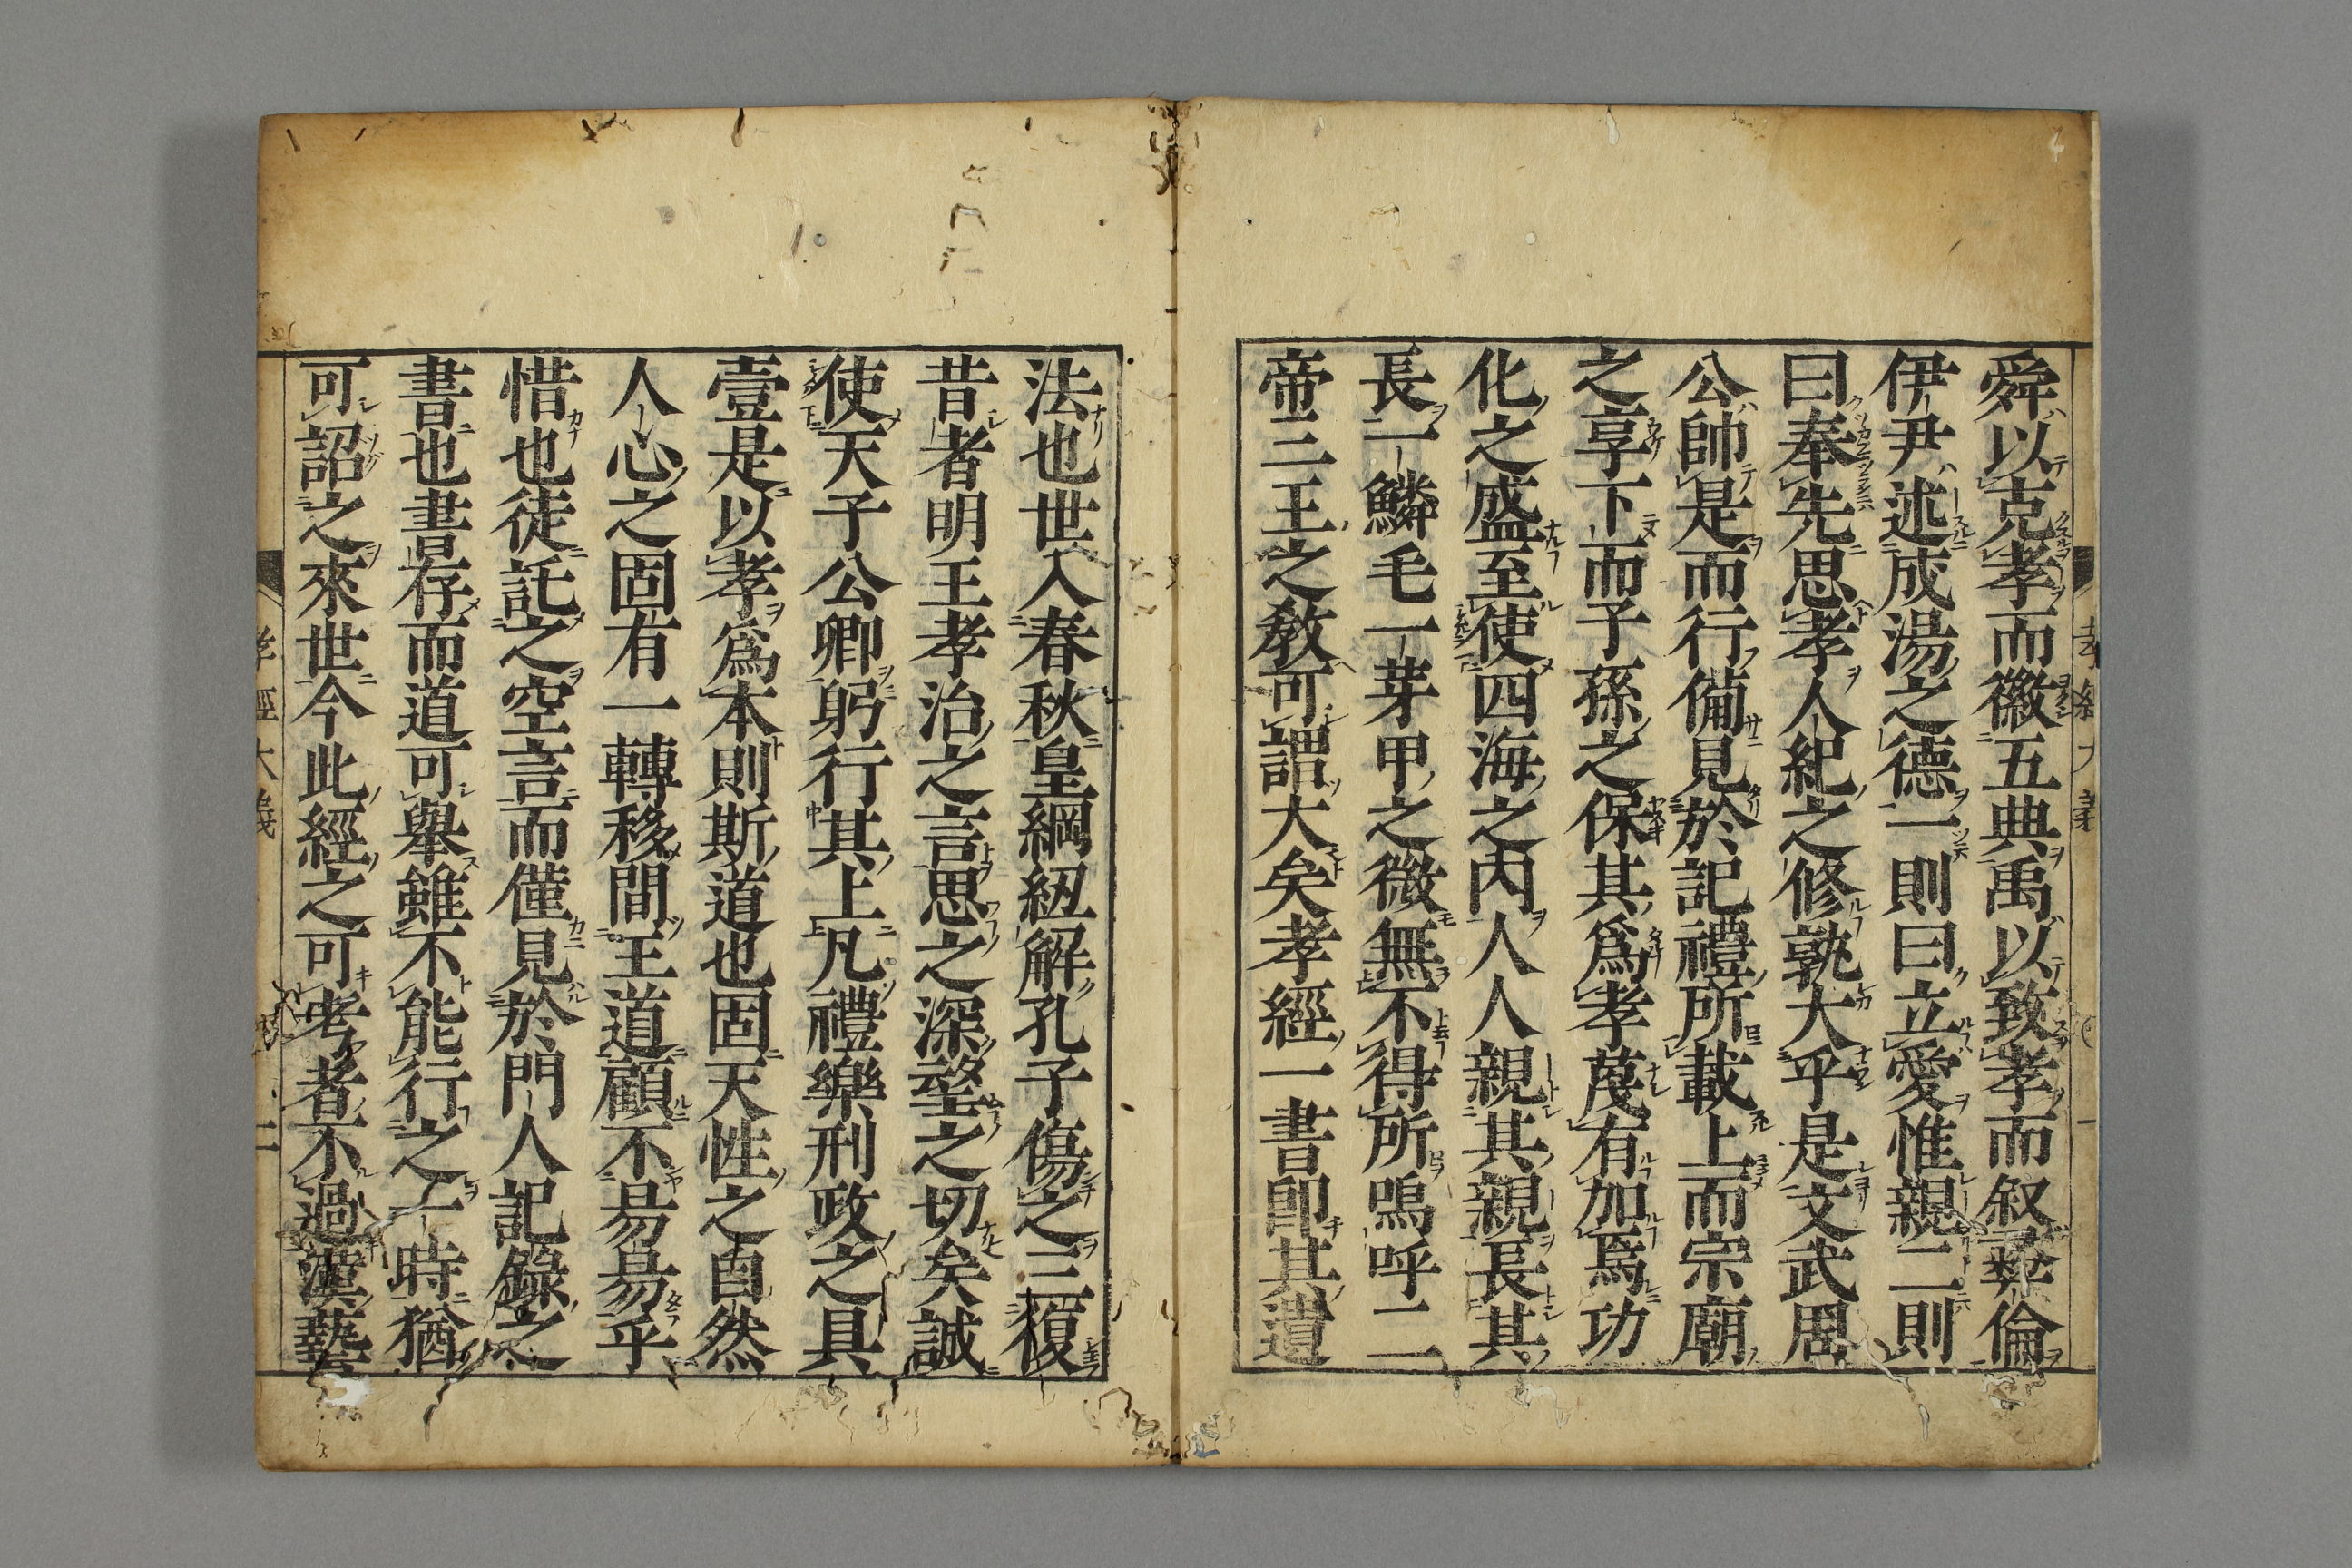 舜以克孝而徽五典禹以致孝而叙彝倫
伊尹述成湯之德一則曰立愛惟親二則
曰奉先思孝人紀之修孰大乎是文武周
公帥是而行備見於記禮所載上而宗廟
之享下而子孫之保其爲孝蔑有加焉功
化之盛至使四海之內人人親其親長其
長一鱗毛一芽甲之微無不得所嗚呼二
帝三王之教可謂大矣孝經一書即其遺
法也世入春秋皇綱紐解孔子傷之三復
昔者明王孝治之言思之深望之切矣誠
使天子公卿躬行其上凡禮樂刑政之具
壹是以孝爲本則斯道也固天性之自然
人心之固有一轉移間王道顧不昜昜乎
惜也徒託之空言而僅見於門人記錄之
書也書存而道可舉雖不能行之一時猶
可詔之來世今此經之可考者不過漢藝
孝經大義